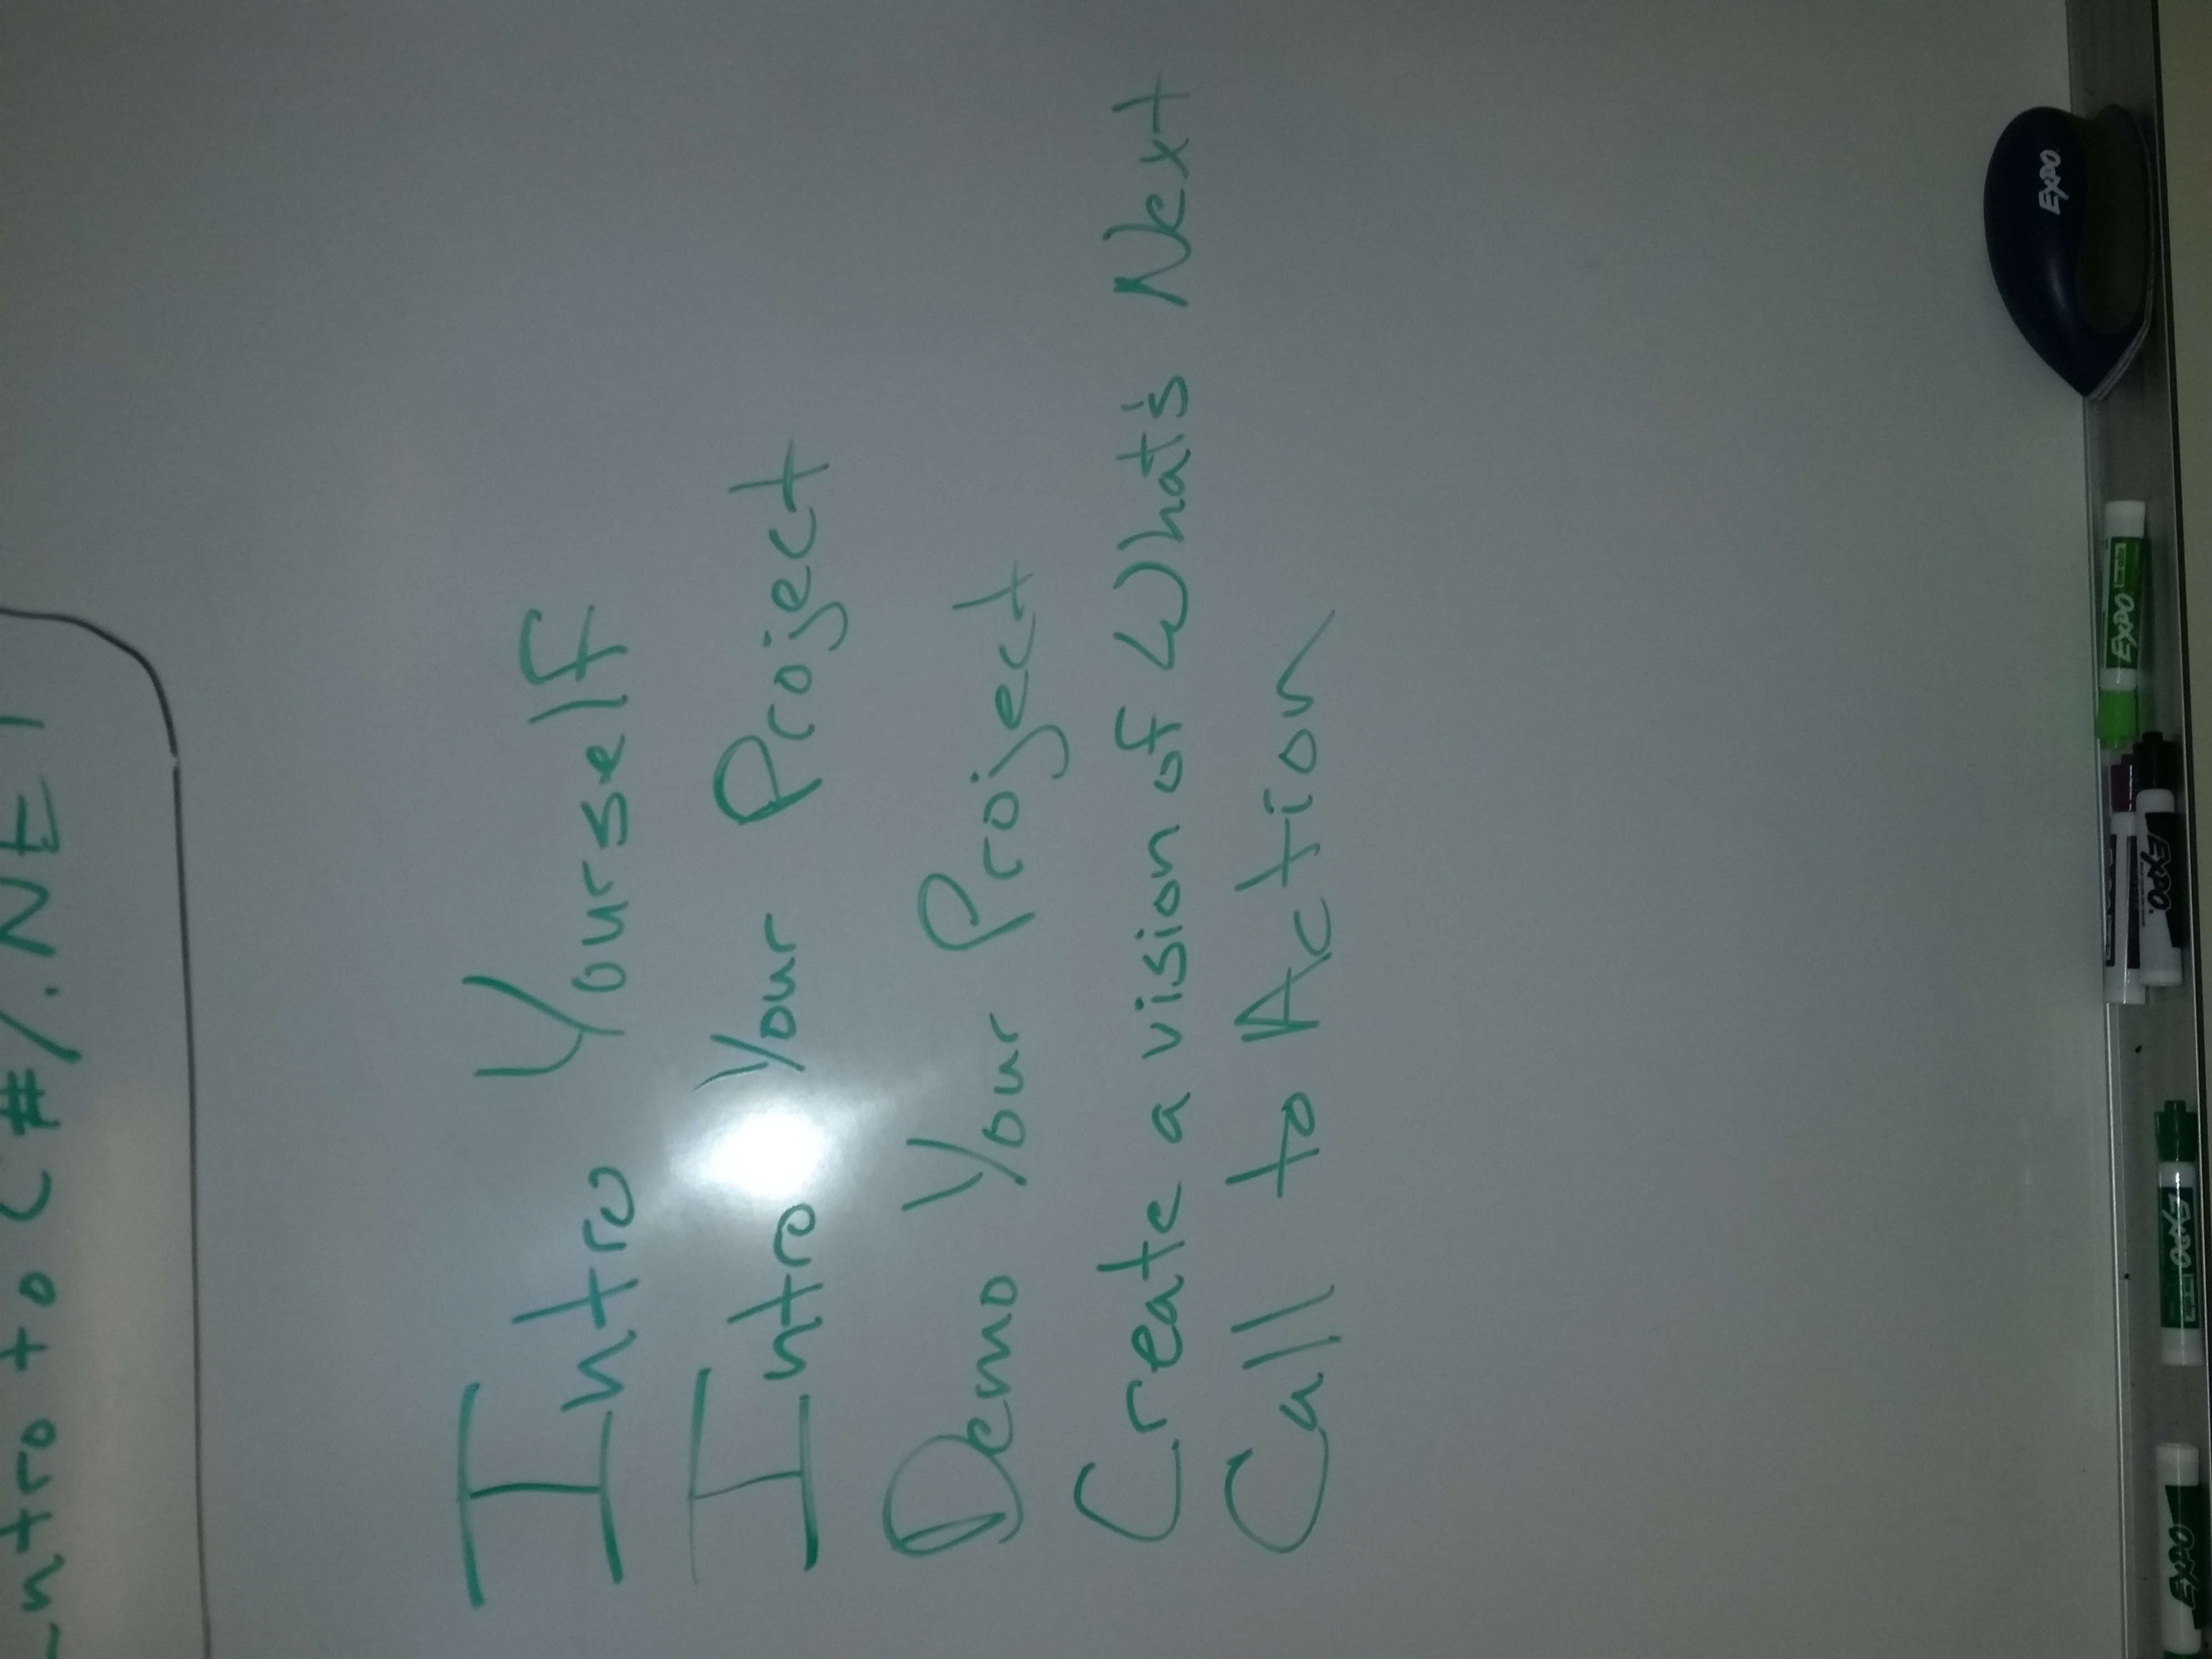 Intro to C#/.NET
Intro Yourself
Intro Your Project
Demo Your Project
Create a vision of What's Next
Call to Action
EXPO
EXPO
EXPO
EXPO
EXPO